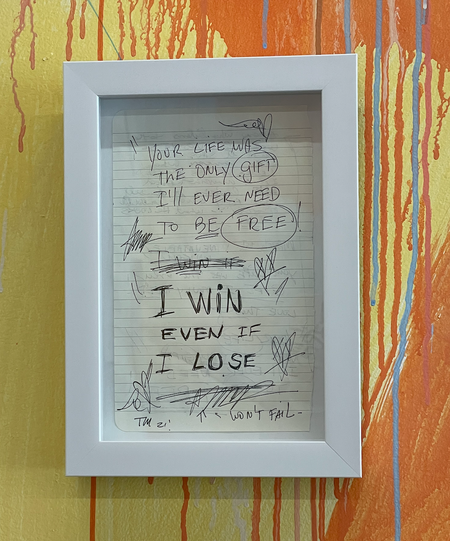 "YOUR LIFE WAS
THE ONLY GIFT
I'll EVER NEED
TO BE FREE!
I WIN IF
"I WiN
EVEN IF
I LOSE
WON'T FAIL-